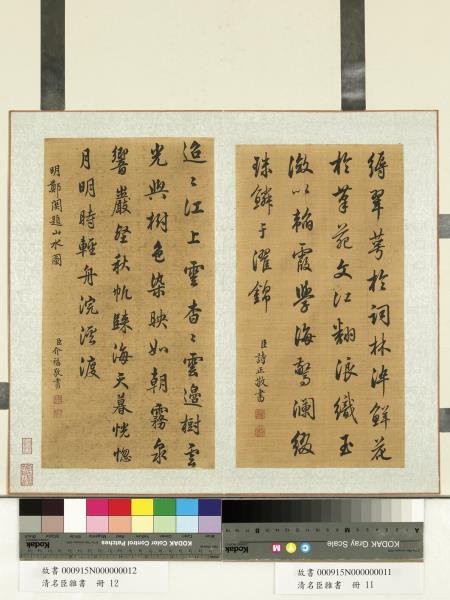 縟翠萼於詞林綷鮮花
於筆苑文江翻浪織玉
潋以韜霞學海驚瀾綴
珠鱗于濯錦
臣詩正敬書
迢〻江上雲杳〻雲邊樹雲
光與樹色染映如朝霧泉
響巖壑秋帆歸海天暮恍惚
月明時輕舟浣溪渡
明鄭關題山水圖
臣介福敬書
Kodak
KODAK Color Control Patches
KODAK Gray Scale
Kodak
故書 000915N000000012
清名臣雜書 冊 12
故書 000915N000000011
清名臣雜書 冊 11